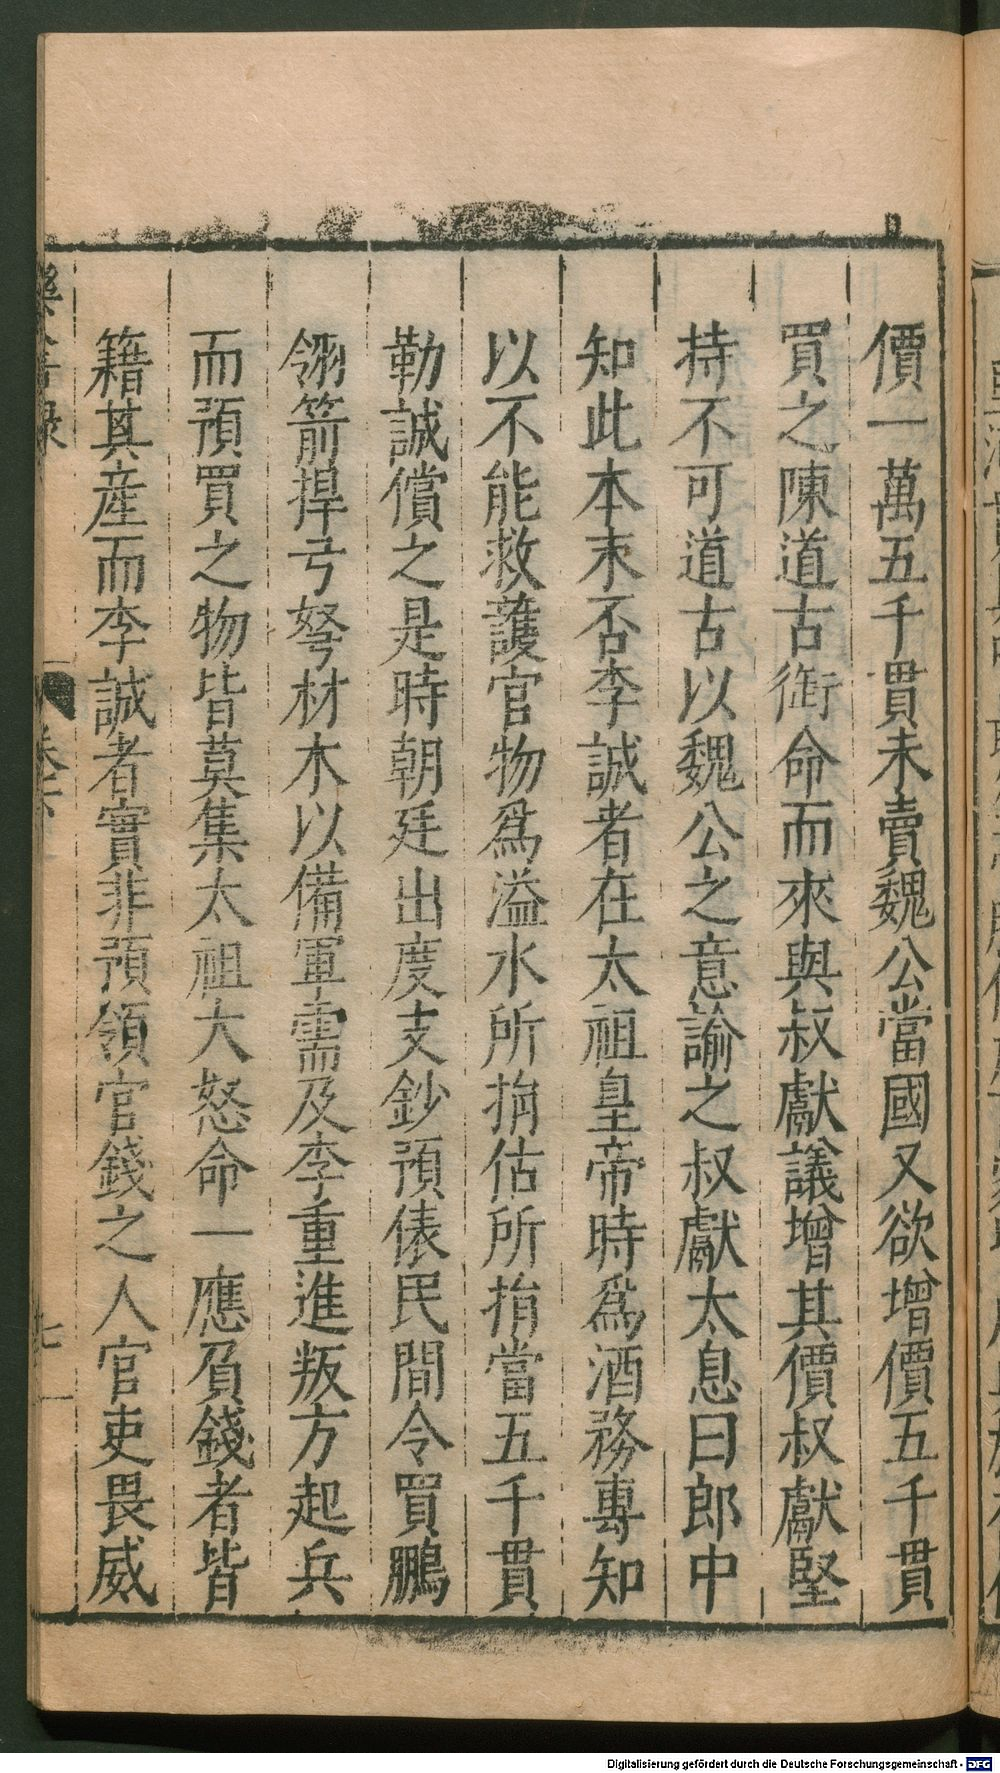 價一萬五千貫未賣魏公當國又欲增價五千貫
買之陳道古銜命而來與叔獻議增其價叔獻堅
持不可道古以魏公之意諭之叔獻太息曰郎中
知此本末否李誠者在太祖皇帝時爲酒務專知
以不能救護官物爲溢水所捐估所捐當五千貫
勒誠償之是時朝廷出度支鈔預俵民間令買鵬
翎箭捍弓弩材木以備軍需及李重進叛方起兵
而預買之物皆莫集太祖大怒命一應負錢者皆
籍其産而李誠者實非預領官錢之人官吏畏威
樂善錄
卷六
七
Digitalisierung gefördert durch die Deutsche Forschungsgemeinschaft - DFG